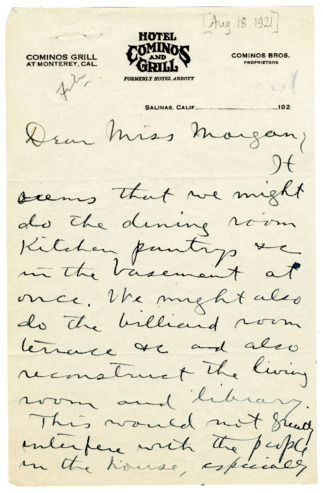 [Aug 18 1921]
HOTEL
COMINOS
AND
GRILL
FORMERLY HOTEL ABBOTT
COMINOS GRILL
AT MONTEREY, CAL.
COMINOS BROS.
PROPRIETORS
SALINAS, CALIF. 192
Dear Miss Morgan,
It
seems that we might
do the dining room
Kitchen pantrys &c
in the basement at
once. We might also
do the billiard room
terrace &c and also
reconstruct the living
room and library.
This would not greatly
interfere with the people
in the house, especially